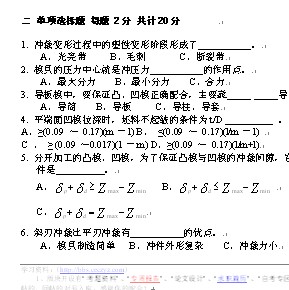 二 单项选择题 每题 2分 共计20分
1. 冲裁变形过程中的塑性变形阶段形成了__________。
A、光亮带 B、毛刺 C、断裂带
2. 模具的压力中心就是冲压力__________的作用点。
A、最大分力 B、最小分力 C、合力
3. 导板模中，要保证凸、凹模正确配合，主要靠 导
A、导筒 B、导板 C、导柱、导套
4. 平端面凹模拉深时，坯料不起皱的条件为t/D __________ 。
A、≥(0.09 ～ 0.17)(m －1) B、≤(0.09 ～ 0.17)(1/m －1)
C 、 ≥ (0.09 ～0.017)(1－m) D、≥(0.09～ 0.17)(1/m+1)
5. 分开加工的凸模、凹模，为了保证凸模与凹模的冲裁间隙，
件是__________。
A、δ凸 + δ凹 ≥ Zmax − Zmin B、δ凸 + δ凹 ≤ Zmax − Zmin
C、δ凸 + δ凹 = Zmax − Zmin
6. 斜刃冲裁比平刃冲裁有__________的优点。
A、模具制造简单 B、冲件外形复杂 C、冲裁力小